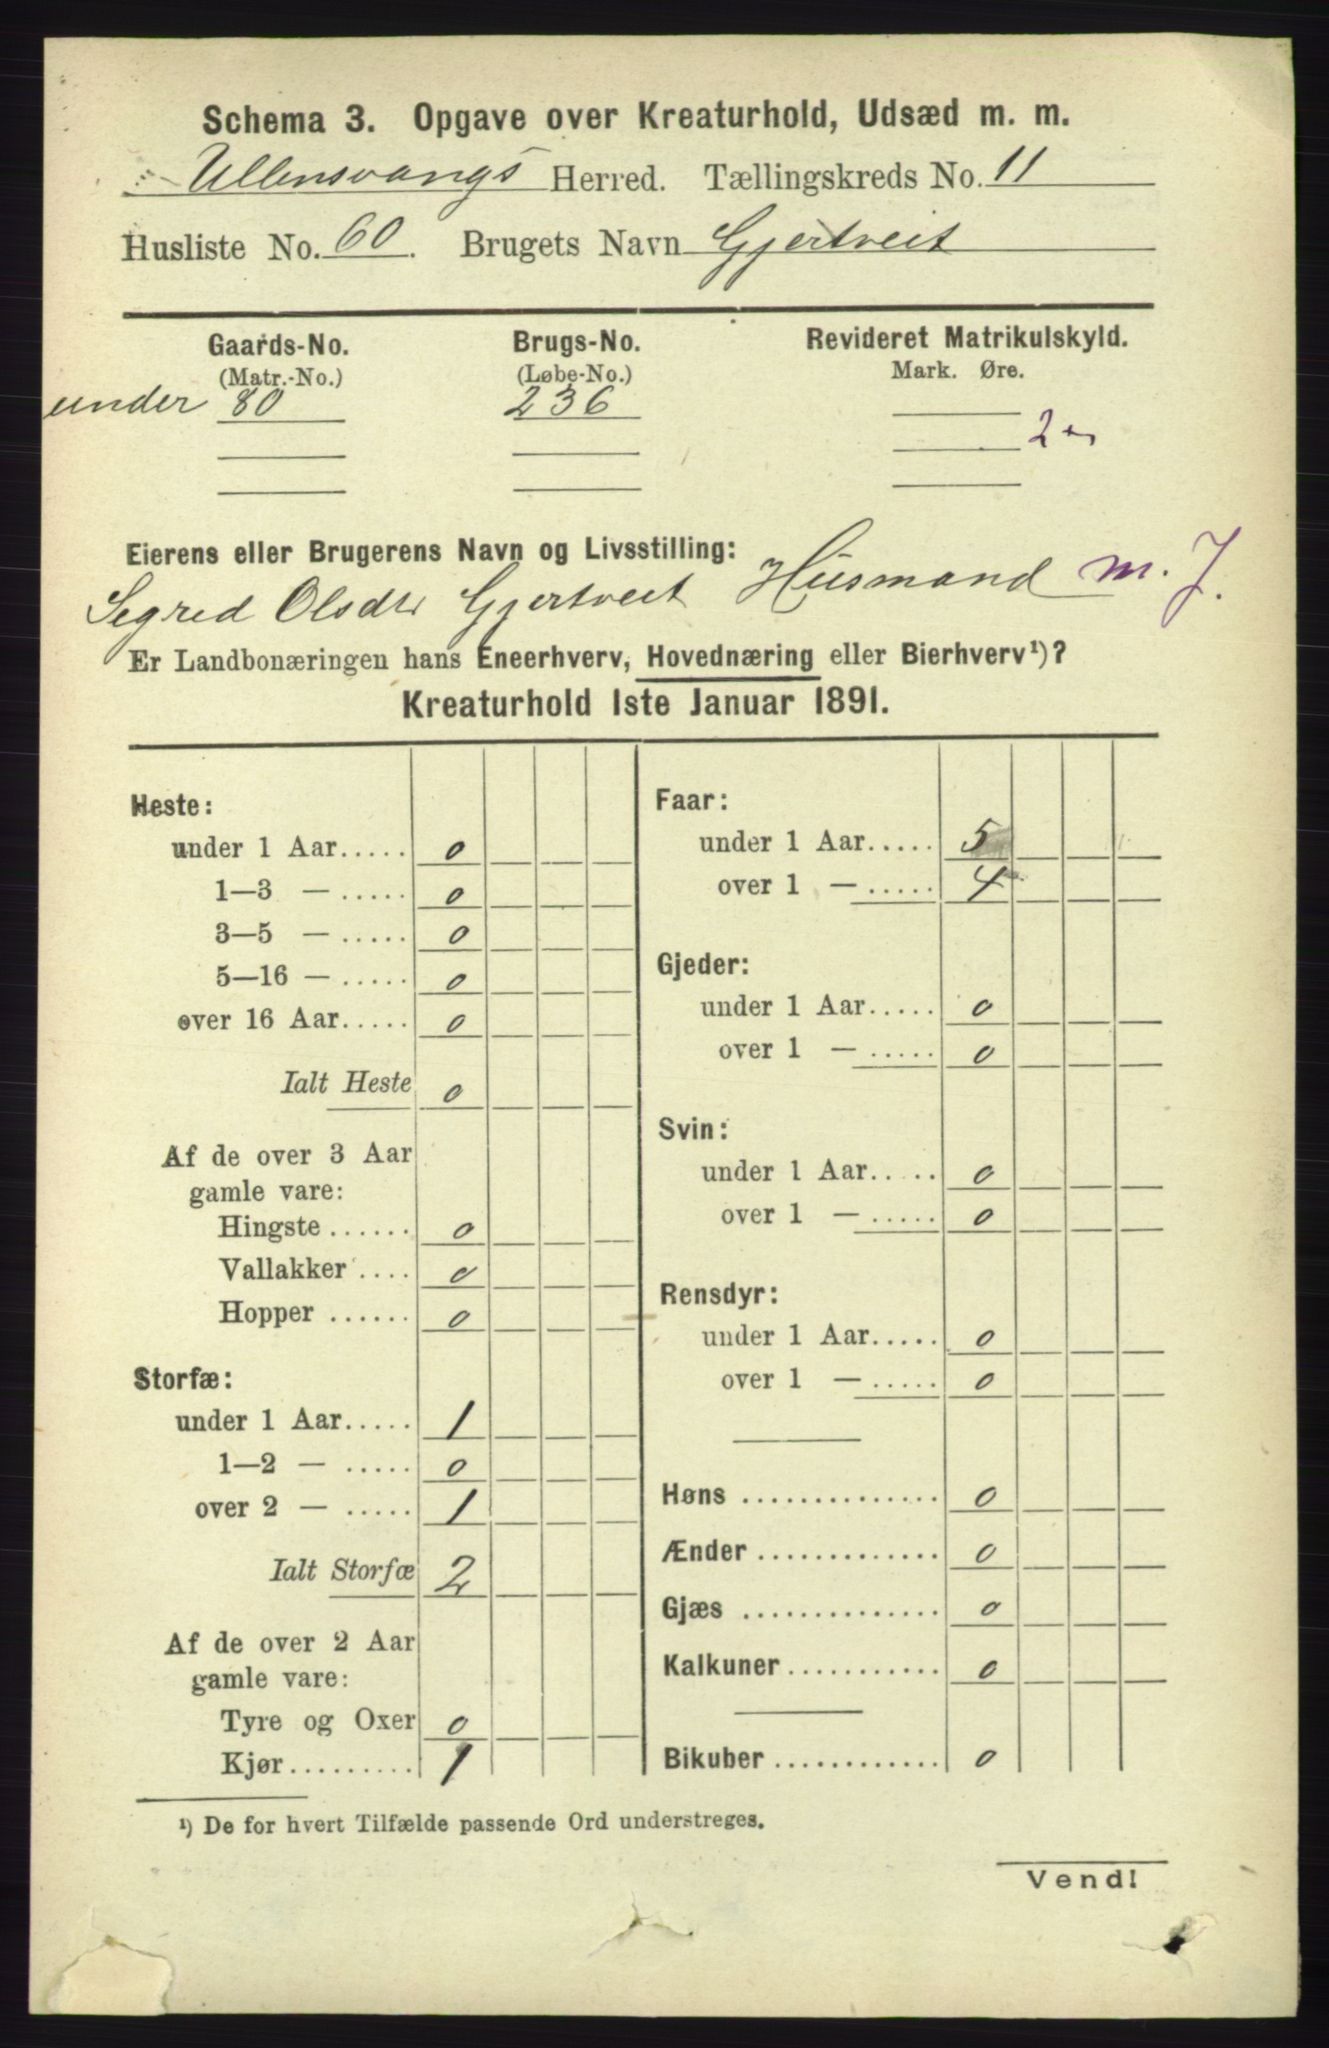 Schema 3. Opgave over Kreaturhold, Udsæd m. m.
Ullensvangs Herred. Tællingskreds No. 11
Husliste No. 60. Brugets Navn Gjertveit
Gaards-No. Brugs-No. Revideret Matrikulskyld.
(Matr.-No.) (Løbe-No.) Mark. Øre.
under 80 236
2
Eierens eller Brugerens Navn og Livsstilling:
Segred Olsdtr Gjertveit Husmand m. J.
Er Landbonæringen hans Eneerhverv, Hovednæring eller Bierhverv¹)?
Kreaturhold 1ste Januar 1891.
Heste:
under 1 Aar..... 0
1—3 — ..... 0
3—5 — ..... 0
5—16 — ..... 0
over 16 Aar..... 0
Ialt Heste 0
Af de over 3 Aar
gamle vare:
Hingste ...... 0
Vallakker .... 0
Hopper ...... 0
Storfæ:
under 1 Aar..... 1
1—2 — ..... 0
over 2 — ..... 1
Ialt Storfæ 2
Af de over 2 Aar
gamle vare:
Tyre og Oxer 0
Kjør......... 1
Faar:
under 1 Aar..... 5
over 1 — ..... 4
Gjeder:
under 1 Aar..... 0
over 1 — ..... 0
Svin:
under 1 Aar..... 0
over 1 — ..... 0
Rensdyr:
under 1 Aar..... 0
over 1 — ..... 0
Høns .............. 0
Ænder ............. 0
Gjæs .............. 0
Kalkuner........... 0
Bikuber ............ 0
¹) De for hvert Tilfælde passende Ord understreges.
Vend!